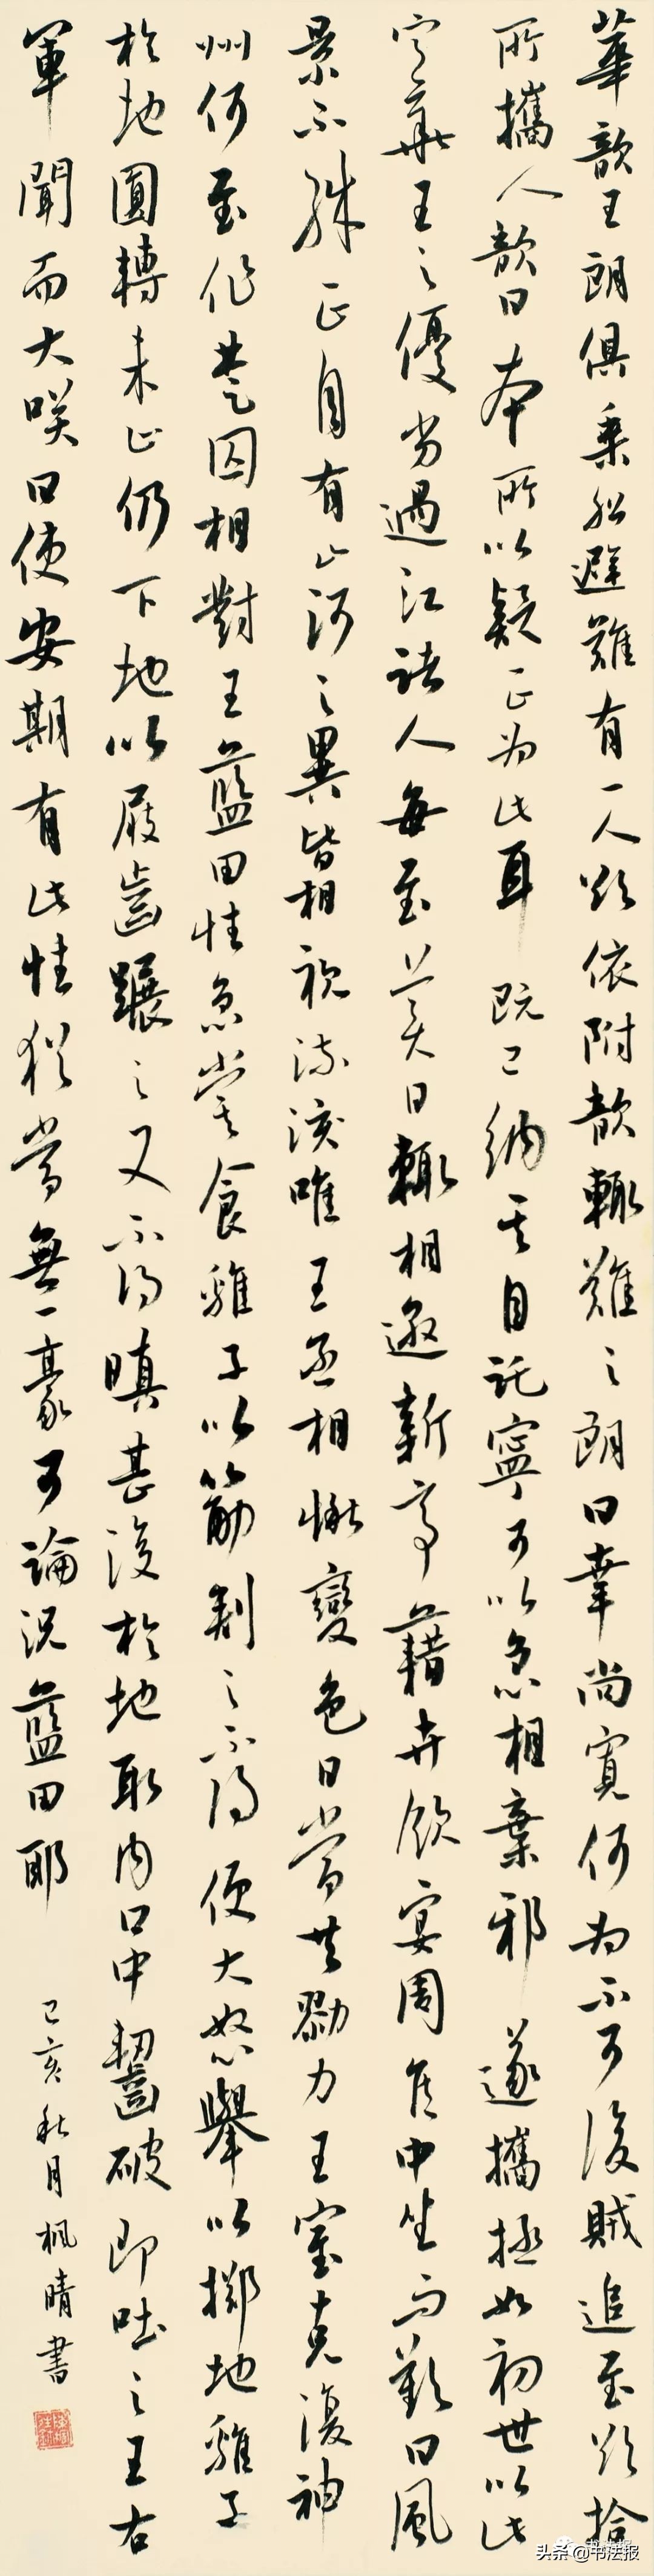 華歆王朗俱乘船避難有一人欲依附歆輒難之朗曰幸尚寬何為不可後賊追至欲捨
所攜人歆曰本所以疑正為此耳既已納其自託寧可以急相棄邪遂攜拯如初世以此
定華王之優劣過江諸人每至美日輒相邀新亭藉卉飲宴周侯中坐而歎曰風
景不殊正自有山河之異皆相視流淚唯王丞相愀變色曰當共勠力王室克復神
州何至作楚囚相對王藍田性急嘗食雞子以筯刺之不得便大怒舉以擲地雞子
於地圓轉未止仍下地以屐齒蹍之又不得瞋甚復於地取內口中齧破即吐之王右
軍聞而大咲曰使安期有此性猶當無一豪可論況藍田耶
己亥秋月楓晴書
头条@书法报